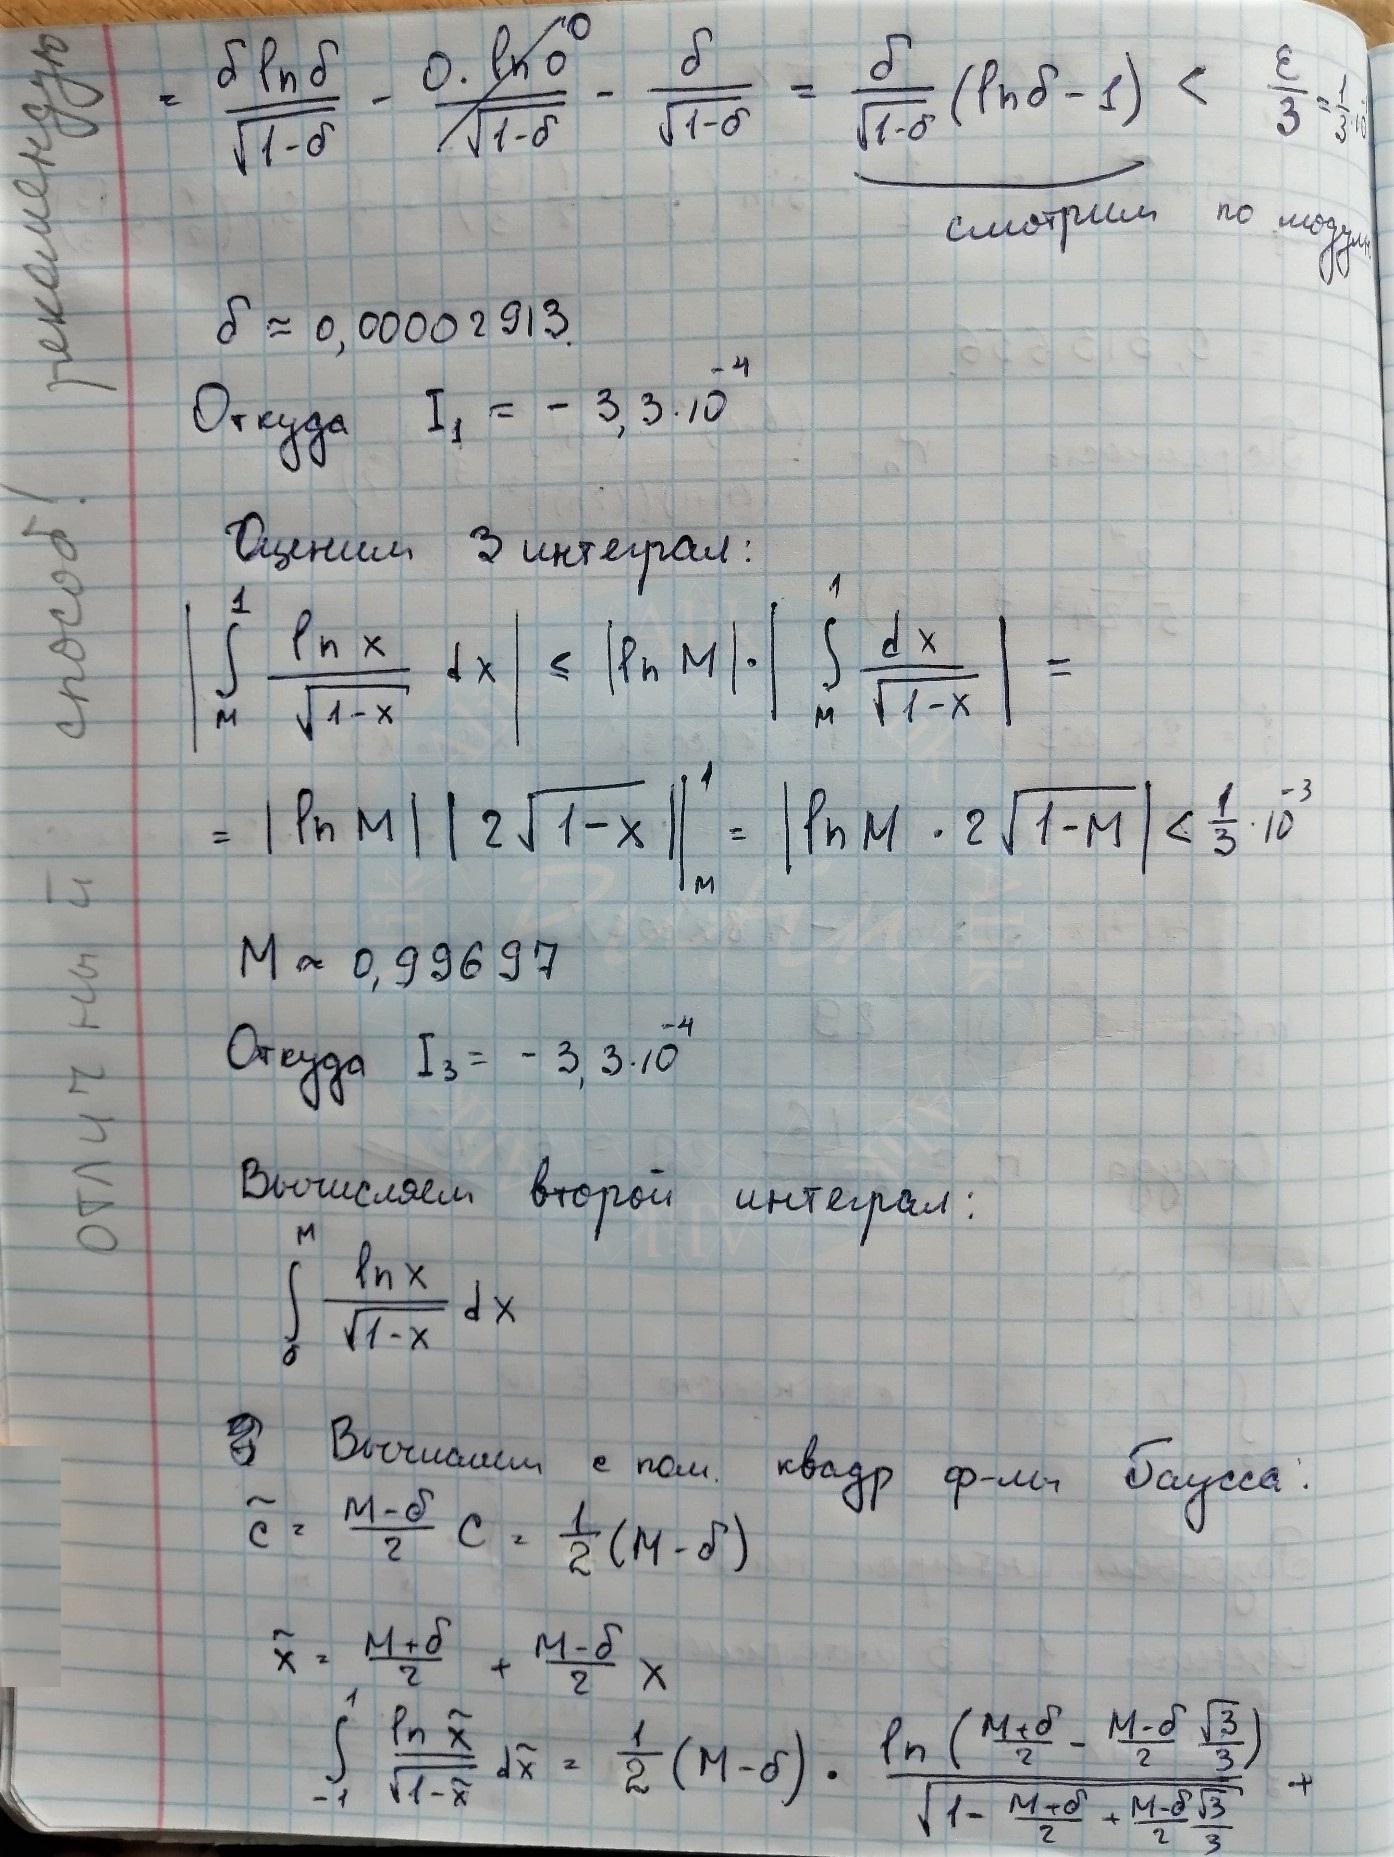 = δ ln δ / √(1-δ) - 0 · ln 0 / √(1-δ) 0 - δ / √(1-δ) = δ / √(1-δ) (ln δ - 1) < ε/3 = 1/3
смотрим по модулю
δ ≈ 0,00002913.
Откуда I₁ = - 3,3·10⁻⁴
Оценим 3 интеграл:
| ∫_M^1 ln x / √(1-x) dx | ≤ |ln M| · | ∫_M^1 dx / √(1-x) | =
= |ln M| | 2√(1-x) | |_M^1 = | ln M · 2√(1-M) | < 1/3 · 10⁻³
M ≈ 0,99697
Откуда I₃ = - 3,3·10⁻⁴
Вычисляем второй интеграл:
∫_δ^M ln x / √(1-x) dx
Вычислим с пом. квадр ф-лы Гаусса:
c̃ = (M-δ)/2 C = 1/2 (M-δ)
x̃ = (M+δ)/2 + (M-δ)/2 x
∫_{-1}^1 ln x̃ / √(1-x̃) dx̃ = 1/2 (M-δ) · ln ( (M+δ)/2 - (M-δ)/2 √3/3 ) / √(1 - (M+δ)/2 + (M-δ)/2 √3/3) +
отличный способ! рекомендую